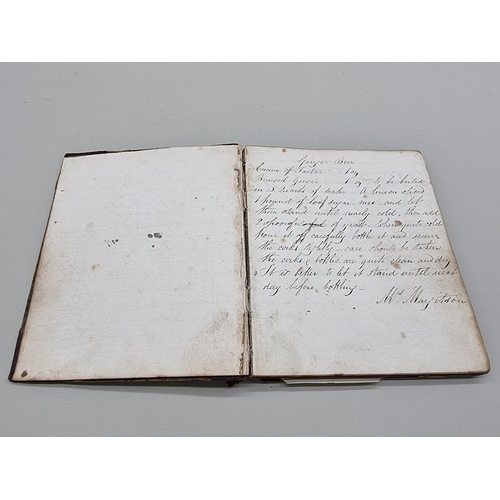 Ginger Beer
Cream of Tartar 1 oz
Bruised Ginger 1 oz to be boiled
in 3 Quarts of water - A lemon sliced
1 pound of loaf sugar mix - and let
them stand until nearly cold, then add
2 spoonfuls of yeast - when quite cold
pour it off carefully bottle it and secure
the corks tightly - care should be taken
the corks & bottles are quite clean and dry
It is better to let it stand until next
day before bottling -
Mrs